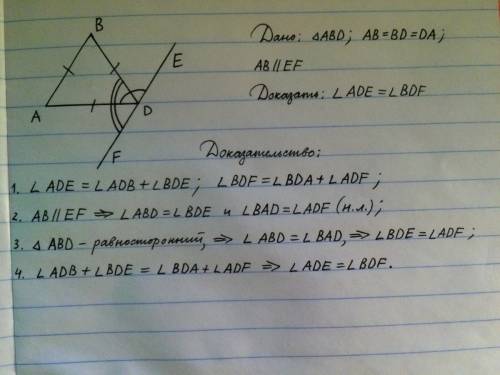 B
E
A
D
F
Дано: △ABD; AB=BD=DA;
AB∥EF
Доказать: ∠ADE=∠BDF
Доказательство:
1. ∠ADE=∠ADB+∠BDE; ∠BDF=∠BDA+∠ADF;
2. AB∥EF ⇒ ∠ABD=∠BDE и ∠BAD=∠ADF (н.л.);
3. △ABD – равносторонний, ⇒ ∠ABD=∠BAD, ⇒ ∠BDE=∠ADF;
4. ∠ADB+∠BDE=∠BDA+∠ADF ⇒ ∠ADE=∠BDF.